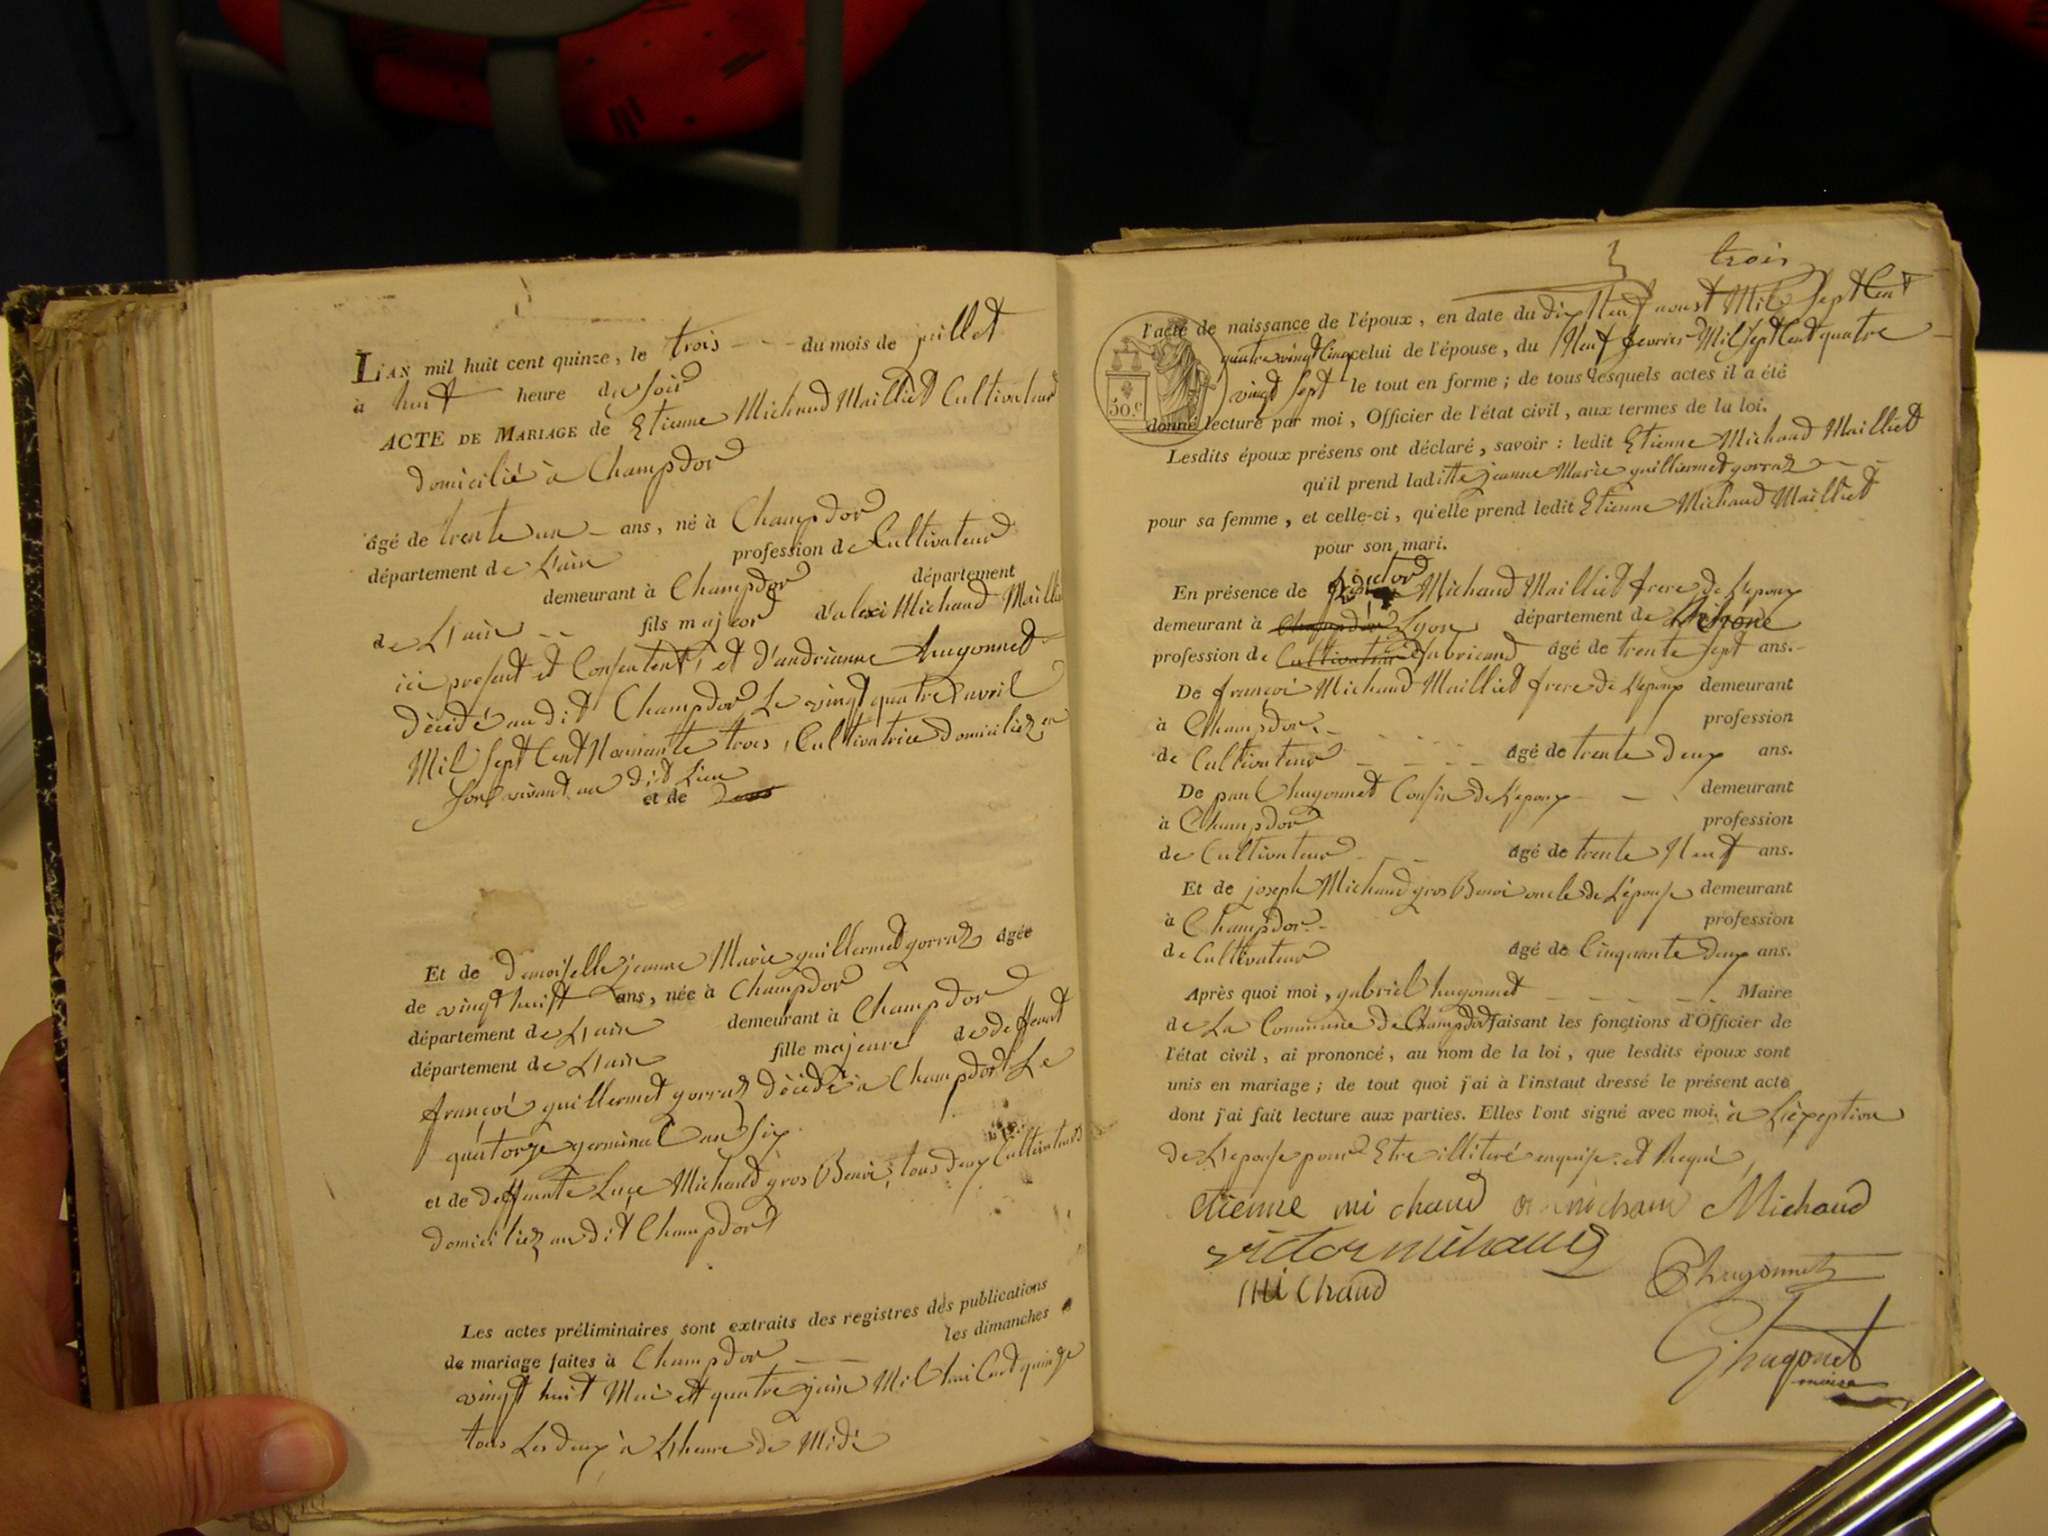 L'AN mil huit cent quinze, le trois du mois de juillet
à huit heure du soir
ACTE DE MARIAGE de Etienne Michaud Mailliet Cultivateur
domicilié à Champdor
âgé de trente un ans, né à Champdor
département de L'ain profession de Cultivateur
demeurant à Champdor département
de L'ain fils majeur d'alexi Michaud Maillie
ici present et Consentent, et d'andrianne hugonnet
décédé au dit Champdor Le vingt quatre avril
Mil Sept Cent Nonante trois, Cultivatrice domiciliez en
Son vivant au dit Lieu
et de
Et de demoiselle jeanne Marie guillermet gorraz âgée
de vingt huit ans, née à Champdor
département de L'ain demeurant à Champdor
département de L'ain fille majeure de deffeunt
françoi guillermet gorraz décédé à Champdor Le
quatorze germinal an Six
et de deffeunte Luce Michaud gros Benoi, tous deux Cultivateurs
domiciliez au dit Champdor
Les actes préliminaires sont extraits des registres des publications
de mariage faites à Champdor les dimanches
vingt huit Mai et quatre juin Mil huit Cent quinze
tous Les deux à L'heure de Midi
trois
l'acte de naissance de l'époux, en date du dix Neuf aoust Mil Sept Cent
quatre vingt Cinq celui de l'épouse, du Neuf fevrier Mil Sept Cent quatre
vingt Sept le tout en forme; de tous lesquels actes il a été
50.c
donné lecture par moi, Officier de l'état civil, aux termes de la loi.
Lesdits époux présens ont déclaré, savoir: ledit Etienne Michaud Mailliet
qu'il prend laditte jeanne Marie guillermet gorraz
pour sa femme, et celle-ci, qu'elle prend ledit Etienne Michaud Mailliet
pour son mari.
En présence de Victor Michaud Mailliet frere de L'epoux
demeurant à Champdor Lyon département de Rhone
profession de Cultivateur fabricand âgé de trente Sept ans.
De françoi Michaud Mailliet frere de L'epoux demeurant
à Champdor profession
de Cultivateur âgé de trente deux ans.
De paul hugonnet Cousin de L'epoux demeurant
à Champdor profession
de Cultivateur âgé de trente Neuf ans.
Et de joseph Michaud gros Benoi oncle de L'épouse demeurant
à Champdor profession
de Cultivateur âgé de Cinquante deux ans.
Après quoi moi, gabriel hugonnet Maire
de La Commune de Champdor faisant les fonctions d'Officier de
l'état civil, ai prononcé, au nom de la loi, que lesdits époux sont
unis en mariage; de tout quoi j'ai à l'instaut dressé le présent acte
dont j'ai fait lecture aux parties. Elles l'ont signé avec moi, à L'exeption
de L'epouse pour Etre illiteré enquise et Requi
etienne mi chaud michaud Michaud
victor mihaud
mi chaud
P hugonnet
G. hugonet
maire